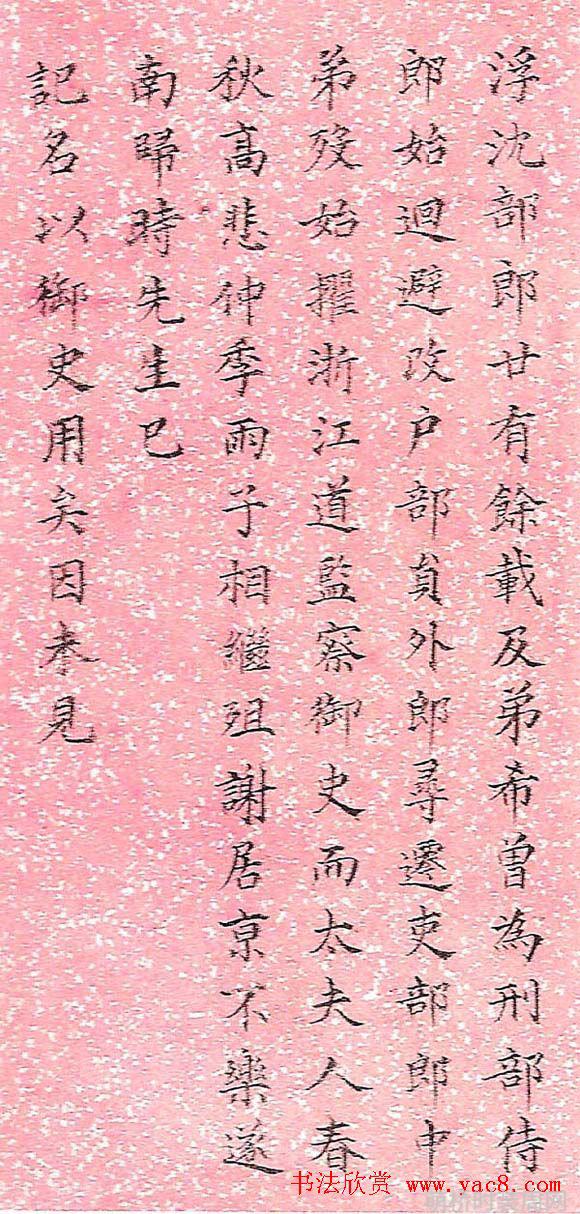 浮沈部郎廿有餘載及弟希曾為刑部侍
郎始迴避改户部貟外郎尋遷吏部郎中
弟歿始擢浙江道監察御史而太夫人春
秋高悲仲季兩子相繼殂謝居京不樂遂
南歸時先生已
記名以御史用矣因未見
书法欣赏 www.yac8.com